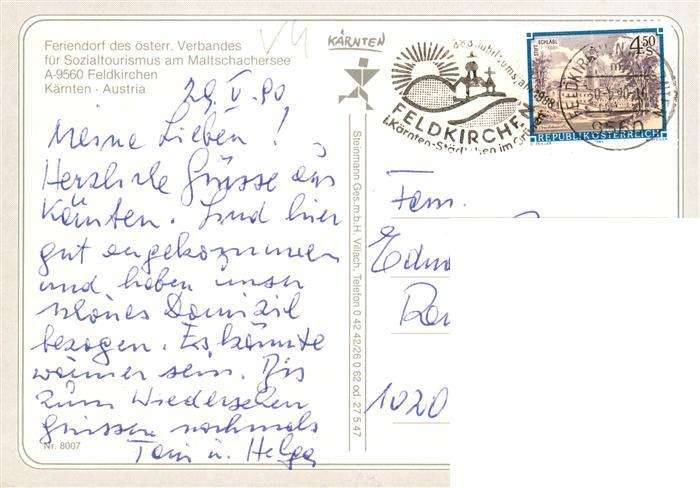 Feriendorf des österr. Verbandes
für Sozialtourismus am Maltschachersee
A-9560 Feldkirchen
Kärnten - Austria
KÄRNTEN
29. V. 90
Meine Lieben!
Herzliche Grüsse aus
Kärnten. Sind hier
gut angekommen
und haben unser
schönes Domizil
bezogen. Es könnte
wärmer sein. Bis
zum Wiedersehen
grüssen nochmals
Toni u. Helga
Nr. 8007
Steinmann Ges.m.b.H. Villach, Telefon 0 42 42/26 0 62 od. 27 5 47
FELDKIRCHEN
i. Kärnten-Städtchen im Grünen
STIFT SCHLÄGL
4.50
S
REPUBLIK ÖSTERREICH
FELDKIRCHEN
9560
Fam.
1020